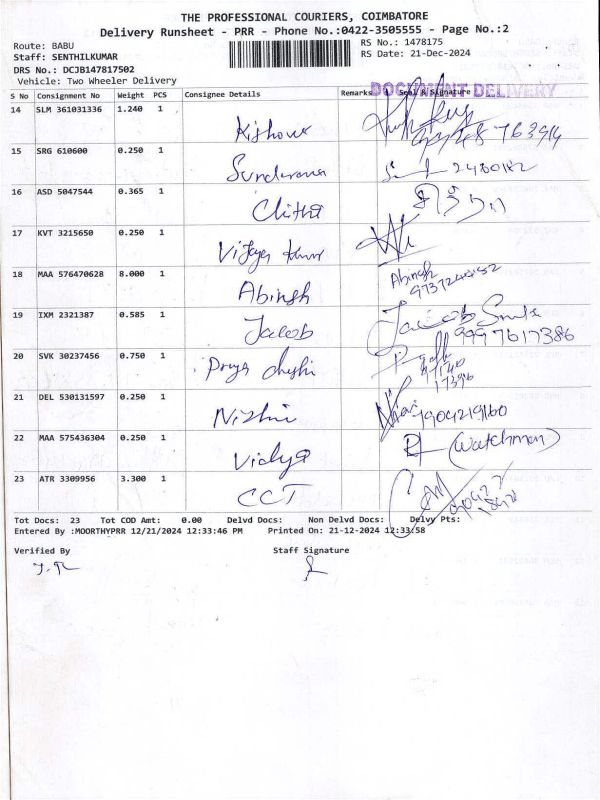 THE PROFESSIONAL COURIERS, COIMBATORE
Delivery Runsheet - PRR - Phone No.:0422-3505555 - Page No.:2
Route: BABU
RS No.: 1478175
Staff: SENTHILKUMAR
RS Date: 21-Dec-2024
DRS No.: DCJB147817502
Vehicle: Two Wheeler Delivery
DOCUMENT DELIVERY
S No Consignment No Weight PCS Consignee Details Remarks Seal & Signature
14 SLM 361031336 1.240 1 Kishore
15 SRG 610600 0.250 1 2480182
16 ASD 5047544 0.365 1 Chitha
17 KVT 3215650 0.250 1 Vijaya Kumar
18 MAA 576470628 8.000 1 Abinsh Abinsh
19 IXM 2321387 0.585 1 Jacob Jacob
9997617386
20 SVK 30237456 0.750 1 Priya
21 DEL 530131597 0.250 1 Nizhu
22 MAA 575436304 0.250 1 Vidya (Watchman)
23 ATR 3309956 3.300 1 CCT
Tot Docs: 23 Tot COD Amt: 0.00 Delvd Docs: Non Delvd Docs: Delvy Pts:
Entered By :MOORTHYPRR 12/21/2024 12:33:46 PM Printed On: 21-12-2024 12:33:58
Verified By Staff Signature